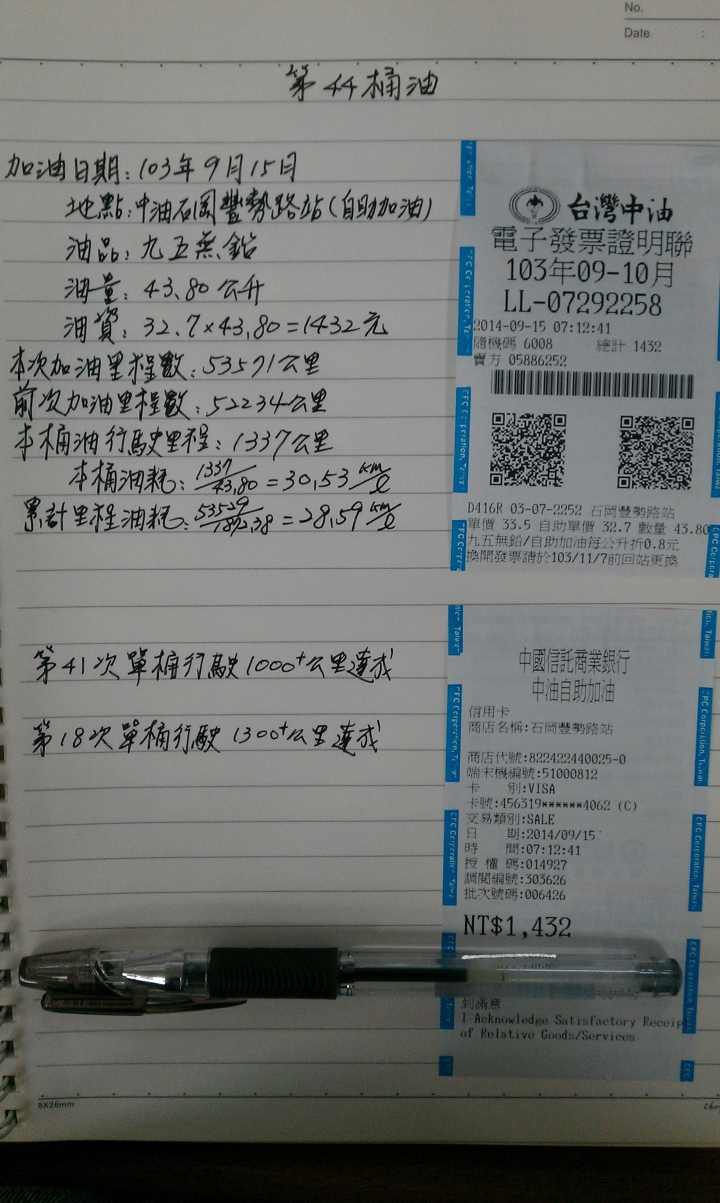 No.
Date :
第44桶油
加油日期:103年9月15日
地點:中油石岡豐勢路站(自助加油)
油品:九五無鉛
油量:43.80公升
油資:32.7×43.80=1432元
本次加油里程數:53571公里
前次加油里程數:52234公里
本桶油行駛里程:1337公里
本桶油耗:1337/43.80=30.53 km/ℓ
累計里程油耗:53529/1872.38=28.59 km/ℓ
第41次單桶行駛1000+公里達成
第18次單桶行駛1300+公里達成
台灣中油
電子發票證明聯
103年09-10月
LL-07292258
2014-09-15 07:12:41
隨機碼 6008 總計 1432
賣方 05886252
D416R 03-07-2252 石岡豐勢路站
單價 33.5 自助單價 32.7 數量 43.80
九五無鉛/自助加油每公升折0.8元
換開發票請於103/11/7前回站更換
中國信託商業銀行
中油自助加油
信用卡
商店名稱:石岡豐勢路站
商店代號:822422440025-0
端末機編號:51000812
卡 別:VISA
卡號:456319******4062 (C)
交易類別:SALE
日 期:2014/09/15
時 間:07:12:41
授 權 碼:014927
調閱編號:303626
批次號碼:006426
NT$1,432
到滿意
I Acknowledge Satisfactory Receip
of Relative Goods/Services
CPC Corporation, Taiwan
6X26mm